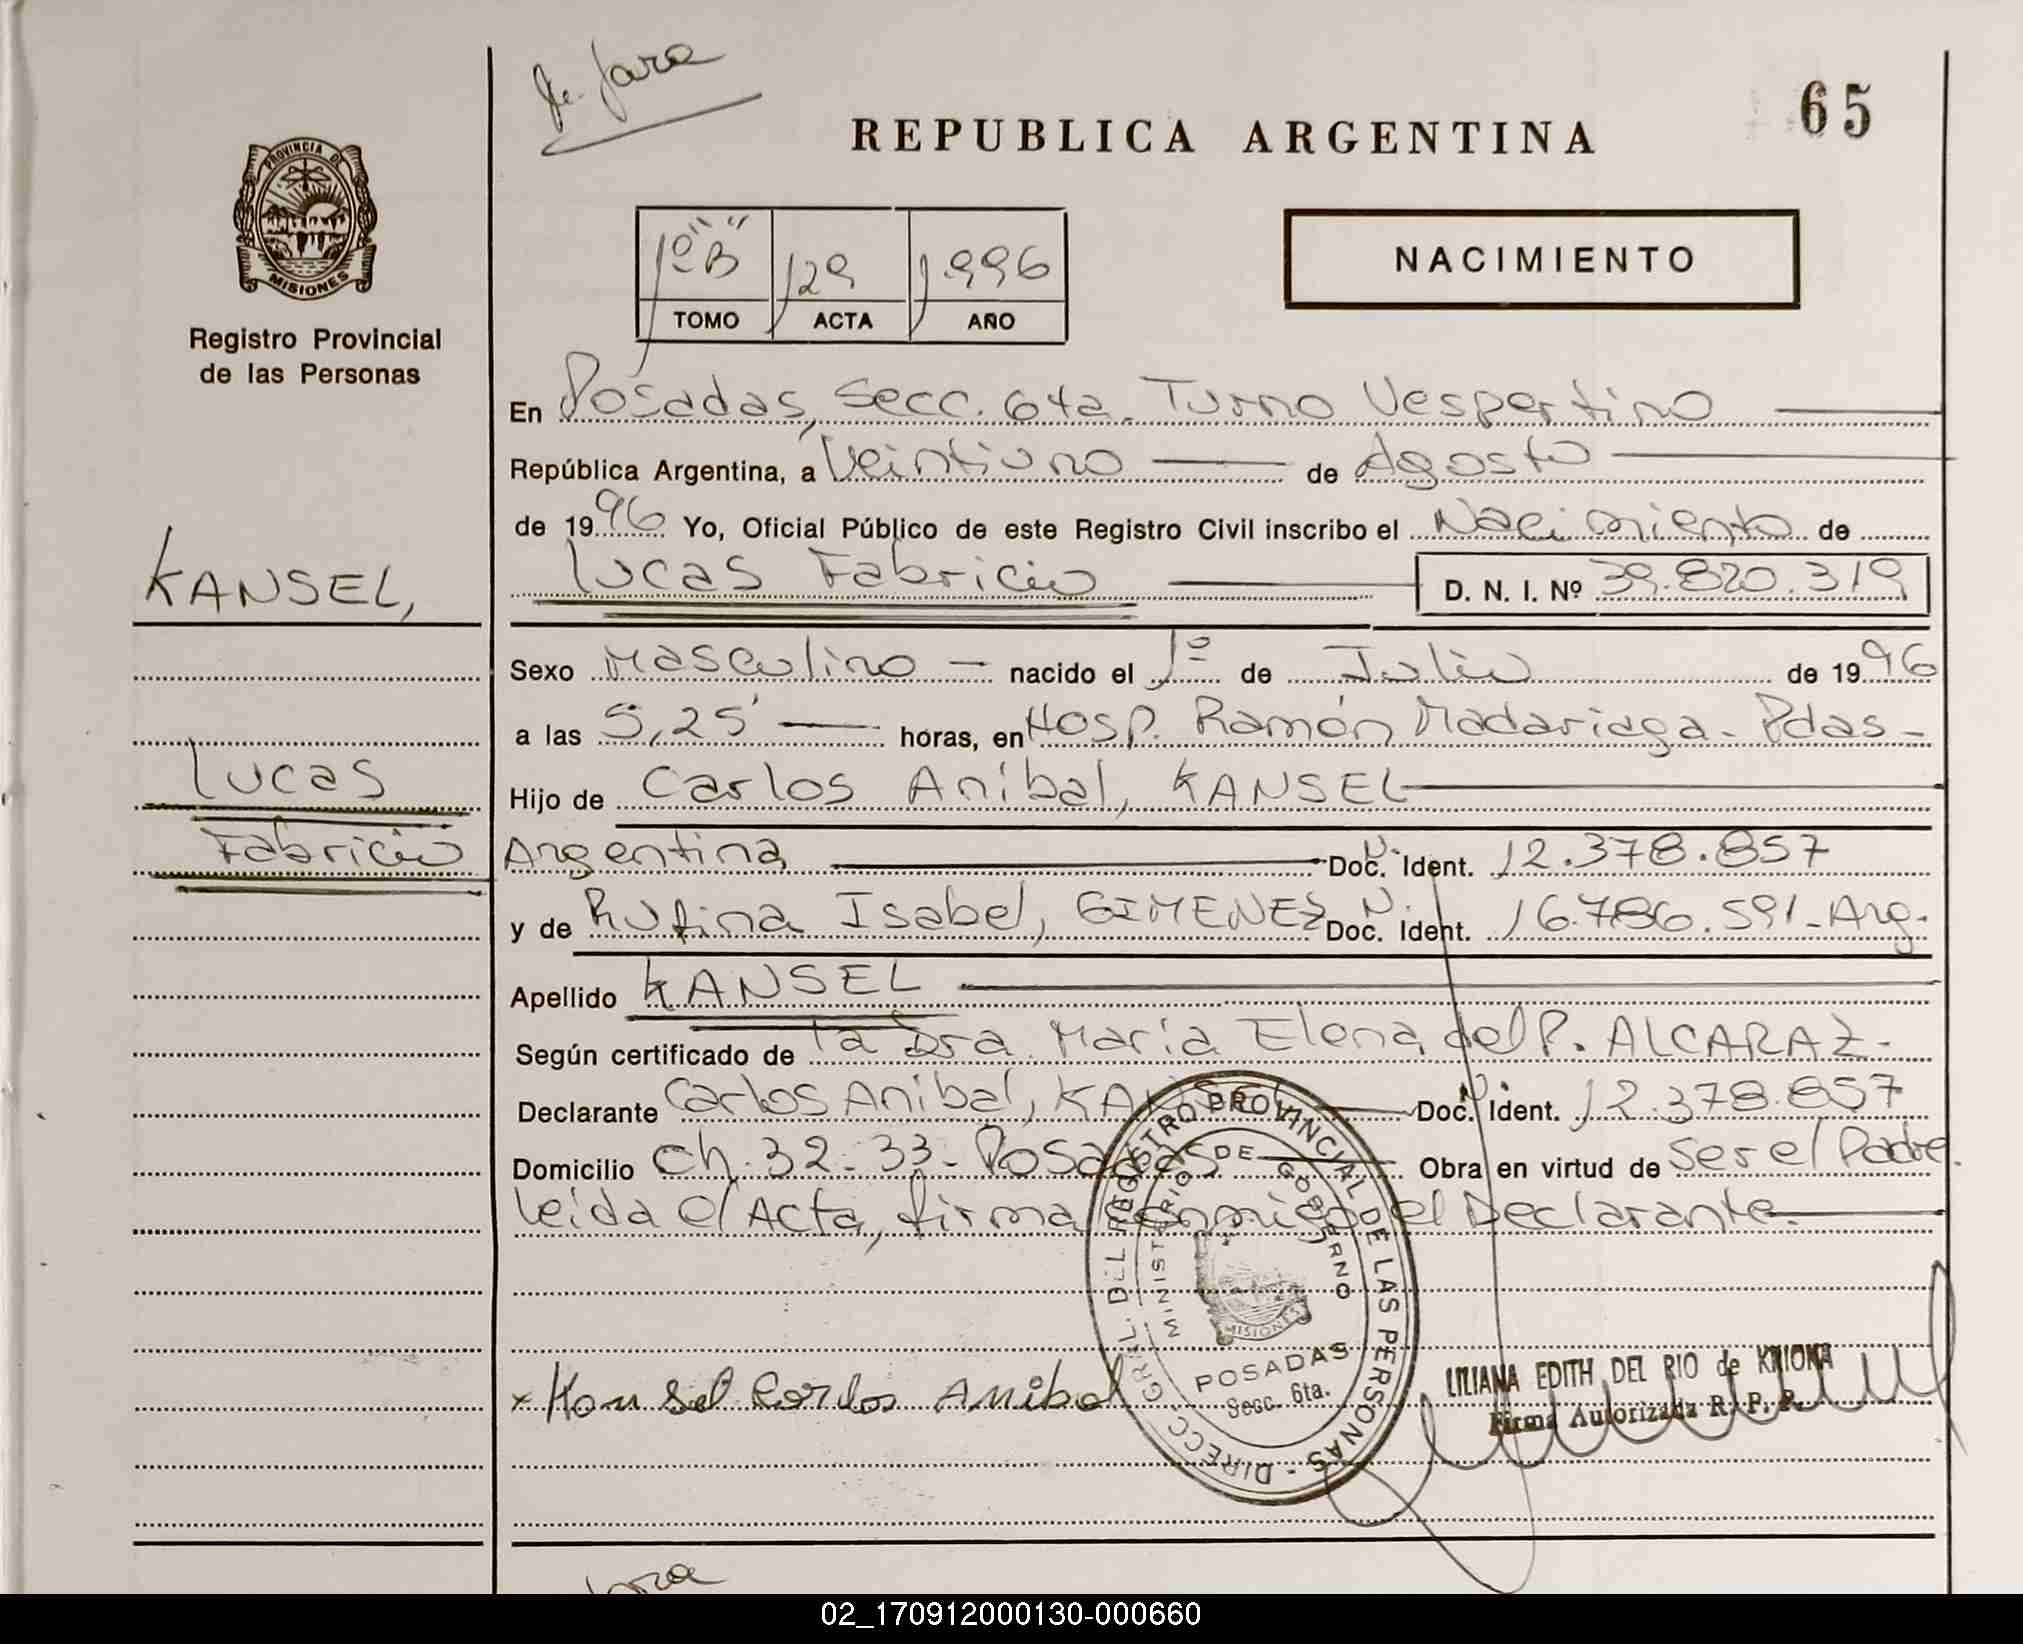 de Jara
REPUBLICA ARGENTINA
65
PROVINCIA DE MISIONES
Registro Provincial
de las Personas
1º "B" 129 1.996
TOMO ACTA AÑO
NACIMIENTO
En Posadas, Secc. 6ta. Turno Vespertino
República Argentina, a Veintiuno de Agosto
de 1996 Yo, Oficial Público de este Registro Civil inscribo el Nacimiento de
KANSEL,
Lucas Fabricio D. N. I. Nº 39.820.319
Sexo Masculino - nacido el 1º de Julio de 1996
a las 5,25' horas, en Hosp. Ramón Madariaga - Pdas -
Lucas
Hijo de Carlos Anibal, KANSEL
Fabricio
Argentina Doc. Ident. 12.378.857
y de Rufina Isabel, GIMENEZ Doc. Ident. 16.786.591 - Arg.
Apellido KANSEL
Según certificado de la Dra. María Elena del P. ALCARAZ -
Declarante Carlos Anibal, KANSEL Doc. Ident. 12.378.857
Domicilio Ch. 32-33 - Posadas Obra en virtud de ser el Padre.
Leída el Acta, firma conmigo el Declarante.
DIRECC. GRAL. DEL REGISTRO PROVINCIAL DE LAS PERSONAS -
MINISTERIO DE GOBERNO
MISIONES
POSADAS
Secc. 6ta.
x Kansel Carlos Anibal
LILIANA EDITH DEL RIO de
Firma Autorizada R. P. P.
02_170912000130-000660